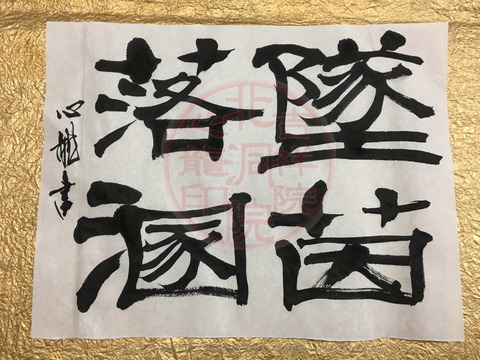 墜茵
落溷
心 書